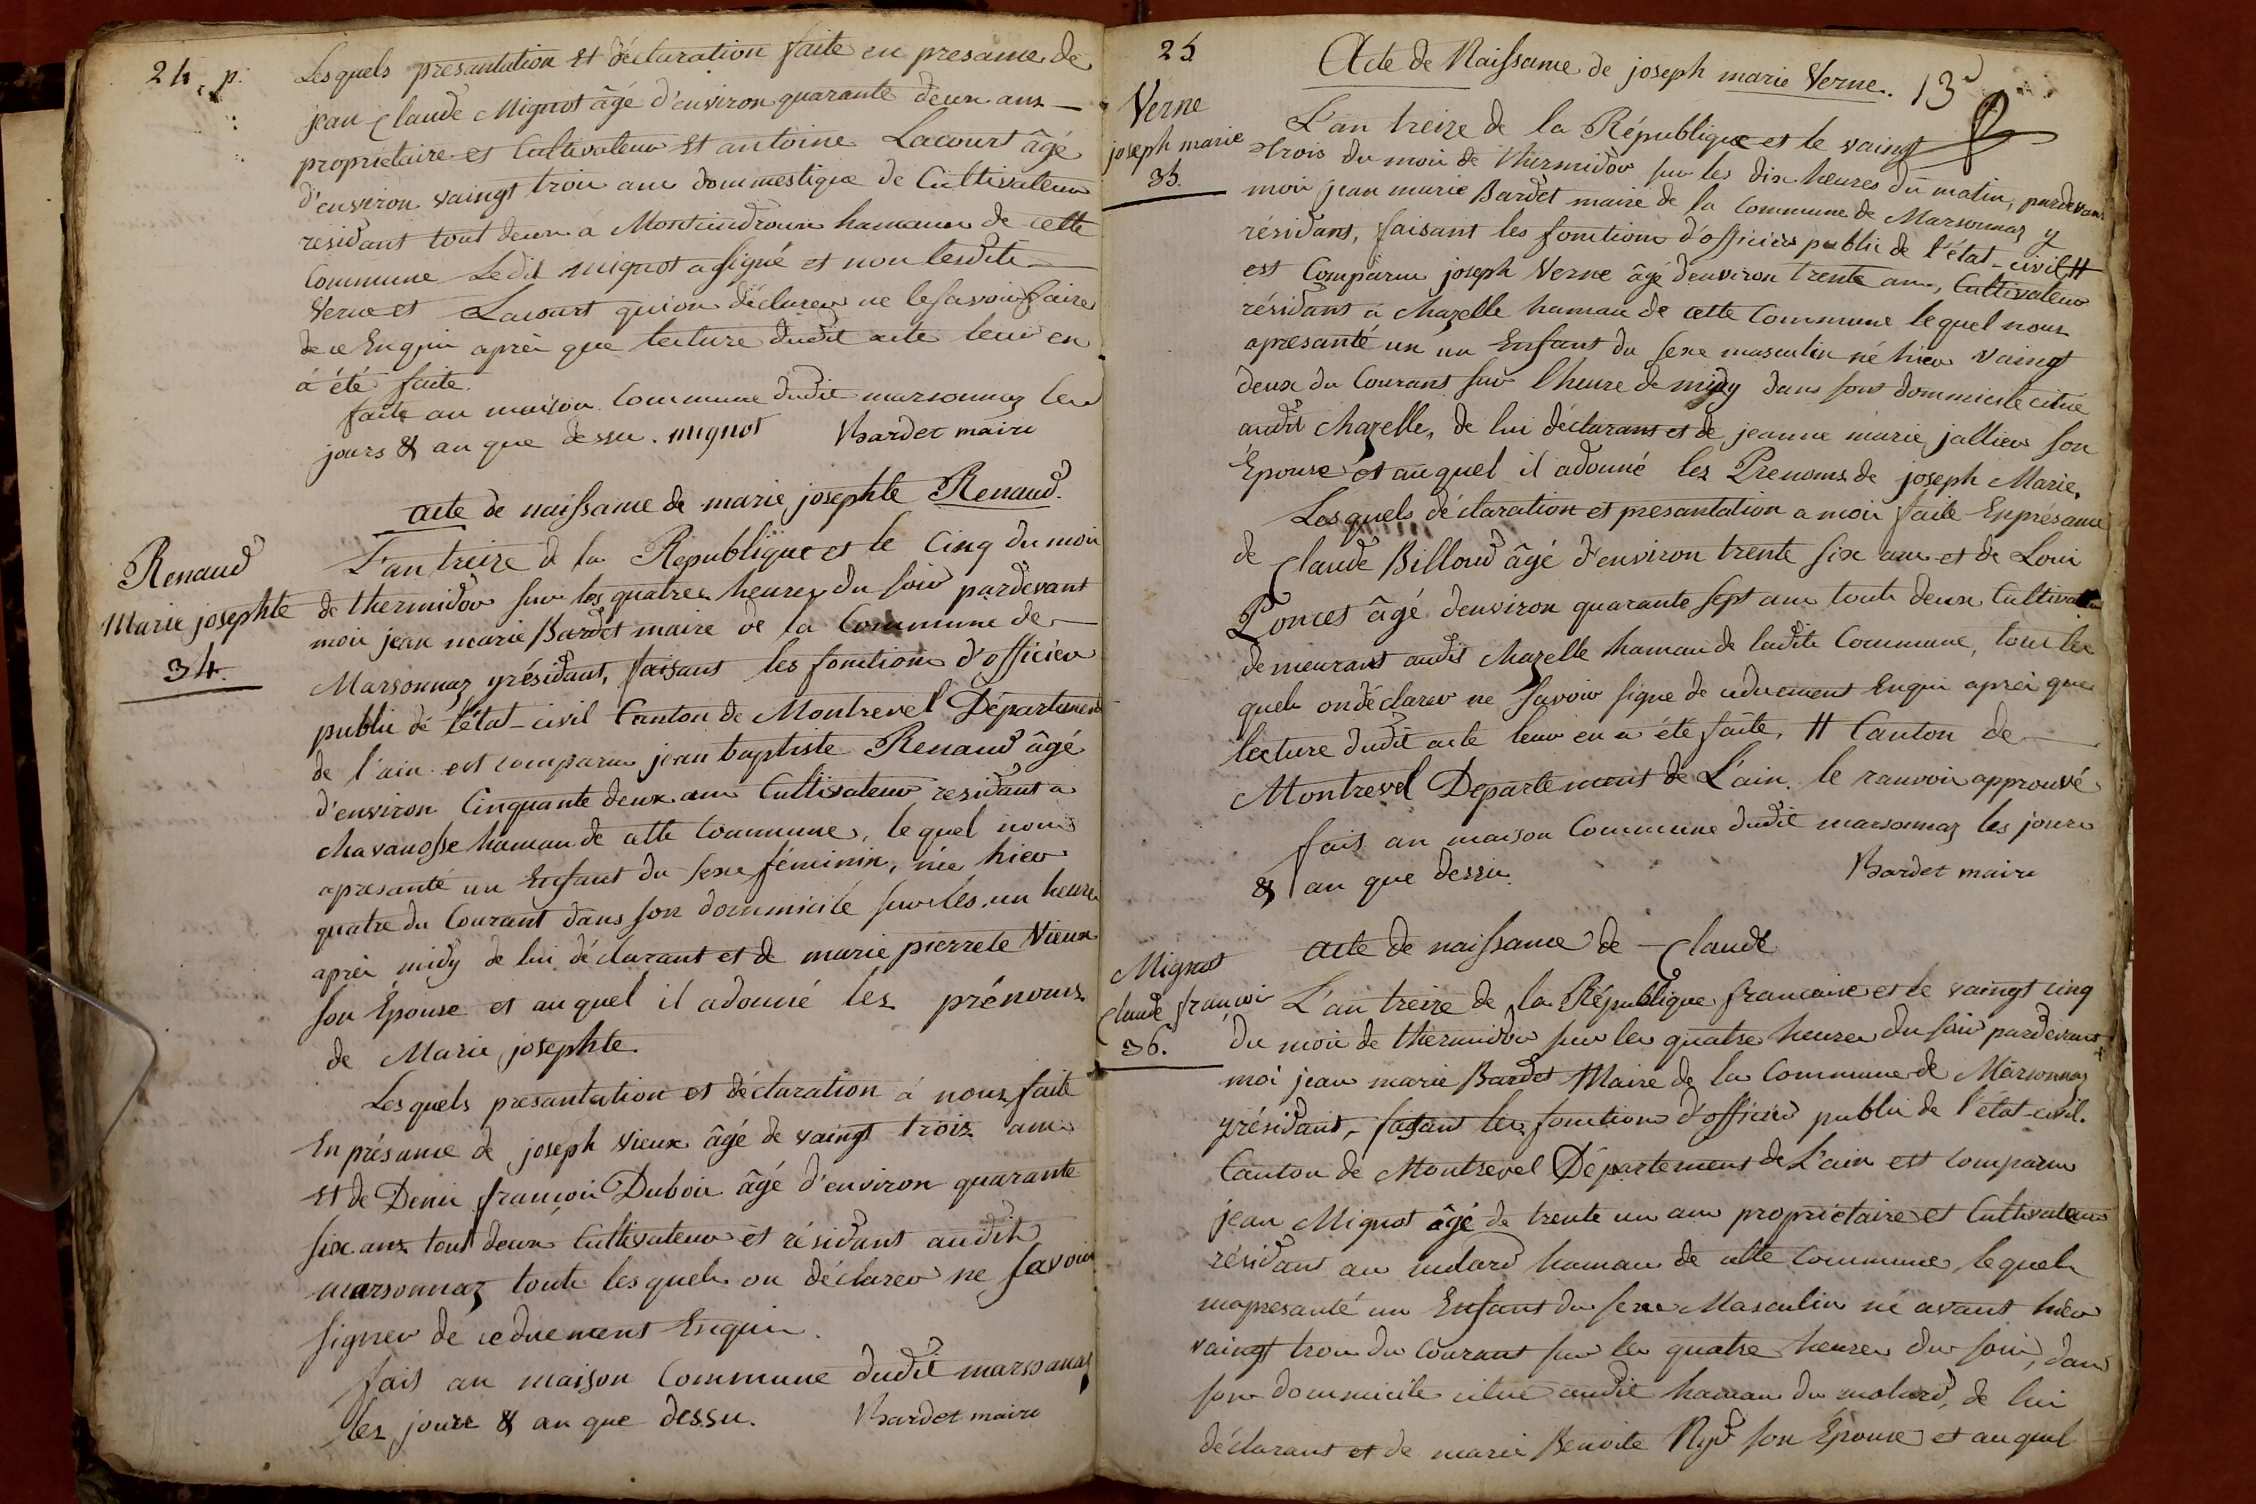 24. p.
Lesquels presantation et déclaration faite en presance de
jean Claude Mignot âgé d'environ quarante deux ans
proprietaire et Cultivateur et antoine Lacourt âgé
d'environ vaingt trois ans dommestique de Cultivateur
residant tout deux à hamaux de cette
Commune Ledit mignot a signé et non lesdits
Verne et Lacourt qui on déclarer ne le savoir faire
de ce Enquis après que lecture dudit acte leur en
à été faite.
faite an maison Commune dudit marsonnaz les
jours & an que dessu. mignot Bardet maire
acte de naissance de marie josephte Renaud.
Renaud
Marie josephte
34.
L'an treize de la Republique et le Cinq du moi
de thermidor sur les quatres heures du soir pardevant
moi jean marie Bardet maire de la Commune de
Marsonnaz y résidant, faisant les fonctions d'officier
public de l'état-civil Canton de Montrevel Département
de l'ain est comparu jean baptiste Renaud âgé
d'environ Cinquante deux ans Cultivateur residant a
chavanosse hamau de cette Commune, lequel nous
apresanté un Enfant du sexe féminin, née hier
quatre du Courant dans son dommicile sur les un heure
après midy de lui déclarant et de marie pierrete Vieux
son Epouse et auquel il adonné les prénoms
de Marie josephte.
Lesquels presantation et déclaration à nous faite
En présance de joseph Vieux âgé de vaingt trois ans
et de Denis françois Dubois âgé d'environ quarante
six ans tout deux Cultivateur et résidant audit
marsonnaz toute lesquels on déclarer ne savoir
signer de ce duement Enquis.
fait an maison Commune dudit marsonnaz
les jours & an que dessu. Bardet maire
25
Acte de Naissance de joseph marie Verne. 13
Verne
joseph marie
35.
L'an treize de la République et le vaingt
trois du moi de thermidor sur les dix heures du matin, pardevant
moi jean marie Bardet maire de la Commune de Marsonnaz y
résidant, faisant les fonctions d'officier public de l'état-civil #
est Comparu joseph Verne âgé d'environ trente ans, Cultivateur
résidant à Chazelle hamau de cette Commune lequel nous
apresanté un un Enfant du sexe masculin né hier vaingt
deux du Courant sur l'heure de midy dans sont dommicile citué
audit Chazelle, de lui déclarant et de jeanne marie jallier son
Epouse et auquel il adonné les Prenoms de joseph Marie,
Lesquels déclaration et presantation a moi faite En présance
de Claude Billoud âgé d'environ trente six ans et de Loui
Poncet âgé d'environ quarante sept ans toute deux Cultivateur
demeurant audit Chazelle hamau de ladite Commune, tout les
quels on déclarer ne savoir signe de ce duement Enquis après que
lecture dudit acte leur en a été faite, # Canton de
Montrevel Departement de L'ain. le ranvoi approuvé
fait an maison Commune dudit marsonnaz les jours
& an que dessu. Bardet maire
acte de naissance de Claude
Mignot
Claude françois
36.
L'an treize de la République française et le vaingt cinq
du moi de thermidor sur les quatre heures du soir pardevant
moi jean marie Bardet Maire de la Commune de Marsonnaz
y résidant, faisant les fonctions d'officier public de l'etat-civil.
Canton de Montrevel Département de L'ain est comparu
jean Mignot âgé de trente un ans propriétaire et Cultivateur
résidant au molard hamau de cette Commune, lequel
mapresanté un Enfant du sexe Masculin né avant hier
vaingt trois du Courant sur les quatre heures du soir, dans
son dommicile citué audit hamau du molard, de lui
déclarant et de marie Benoite son Epouse et auquel